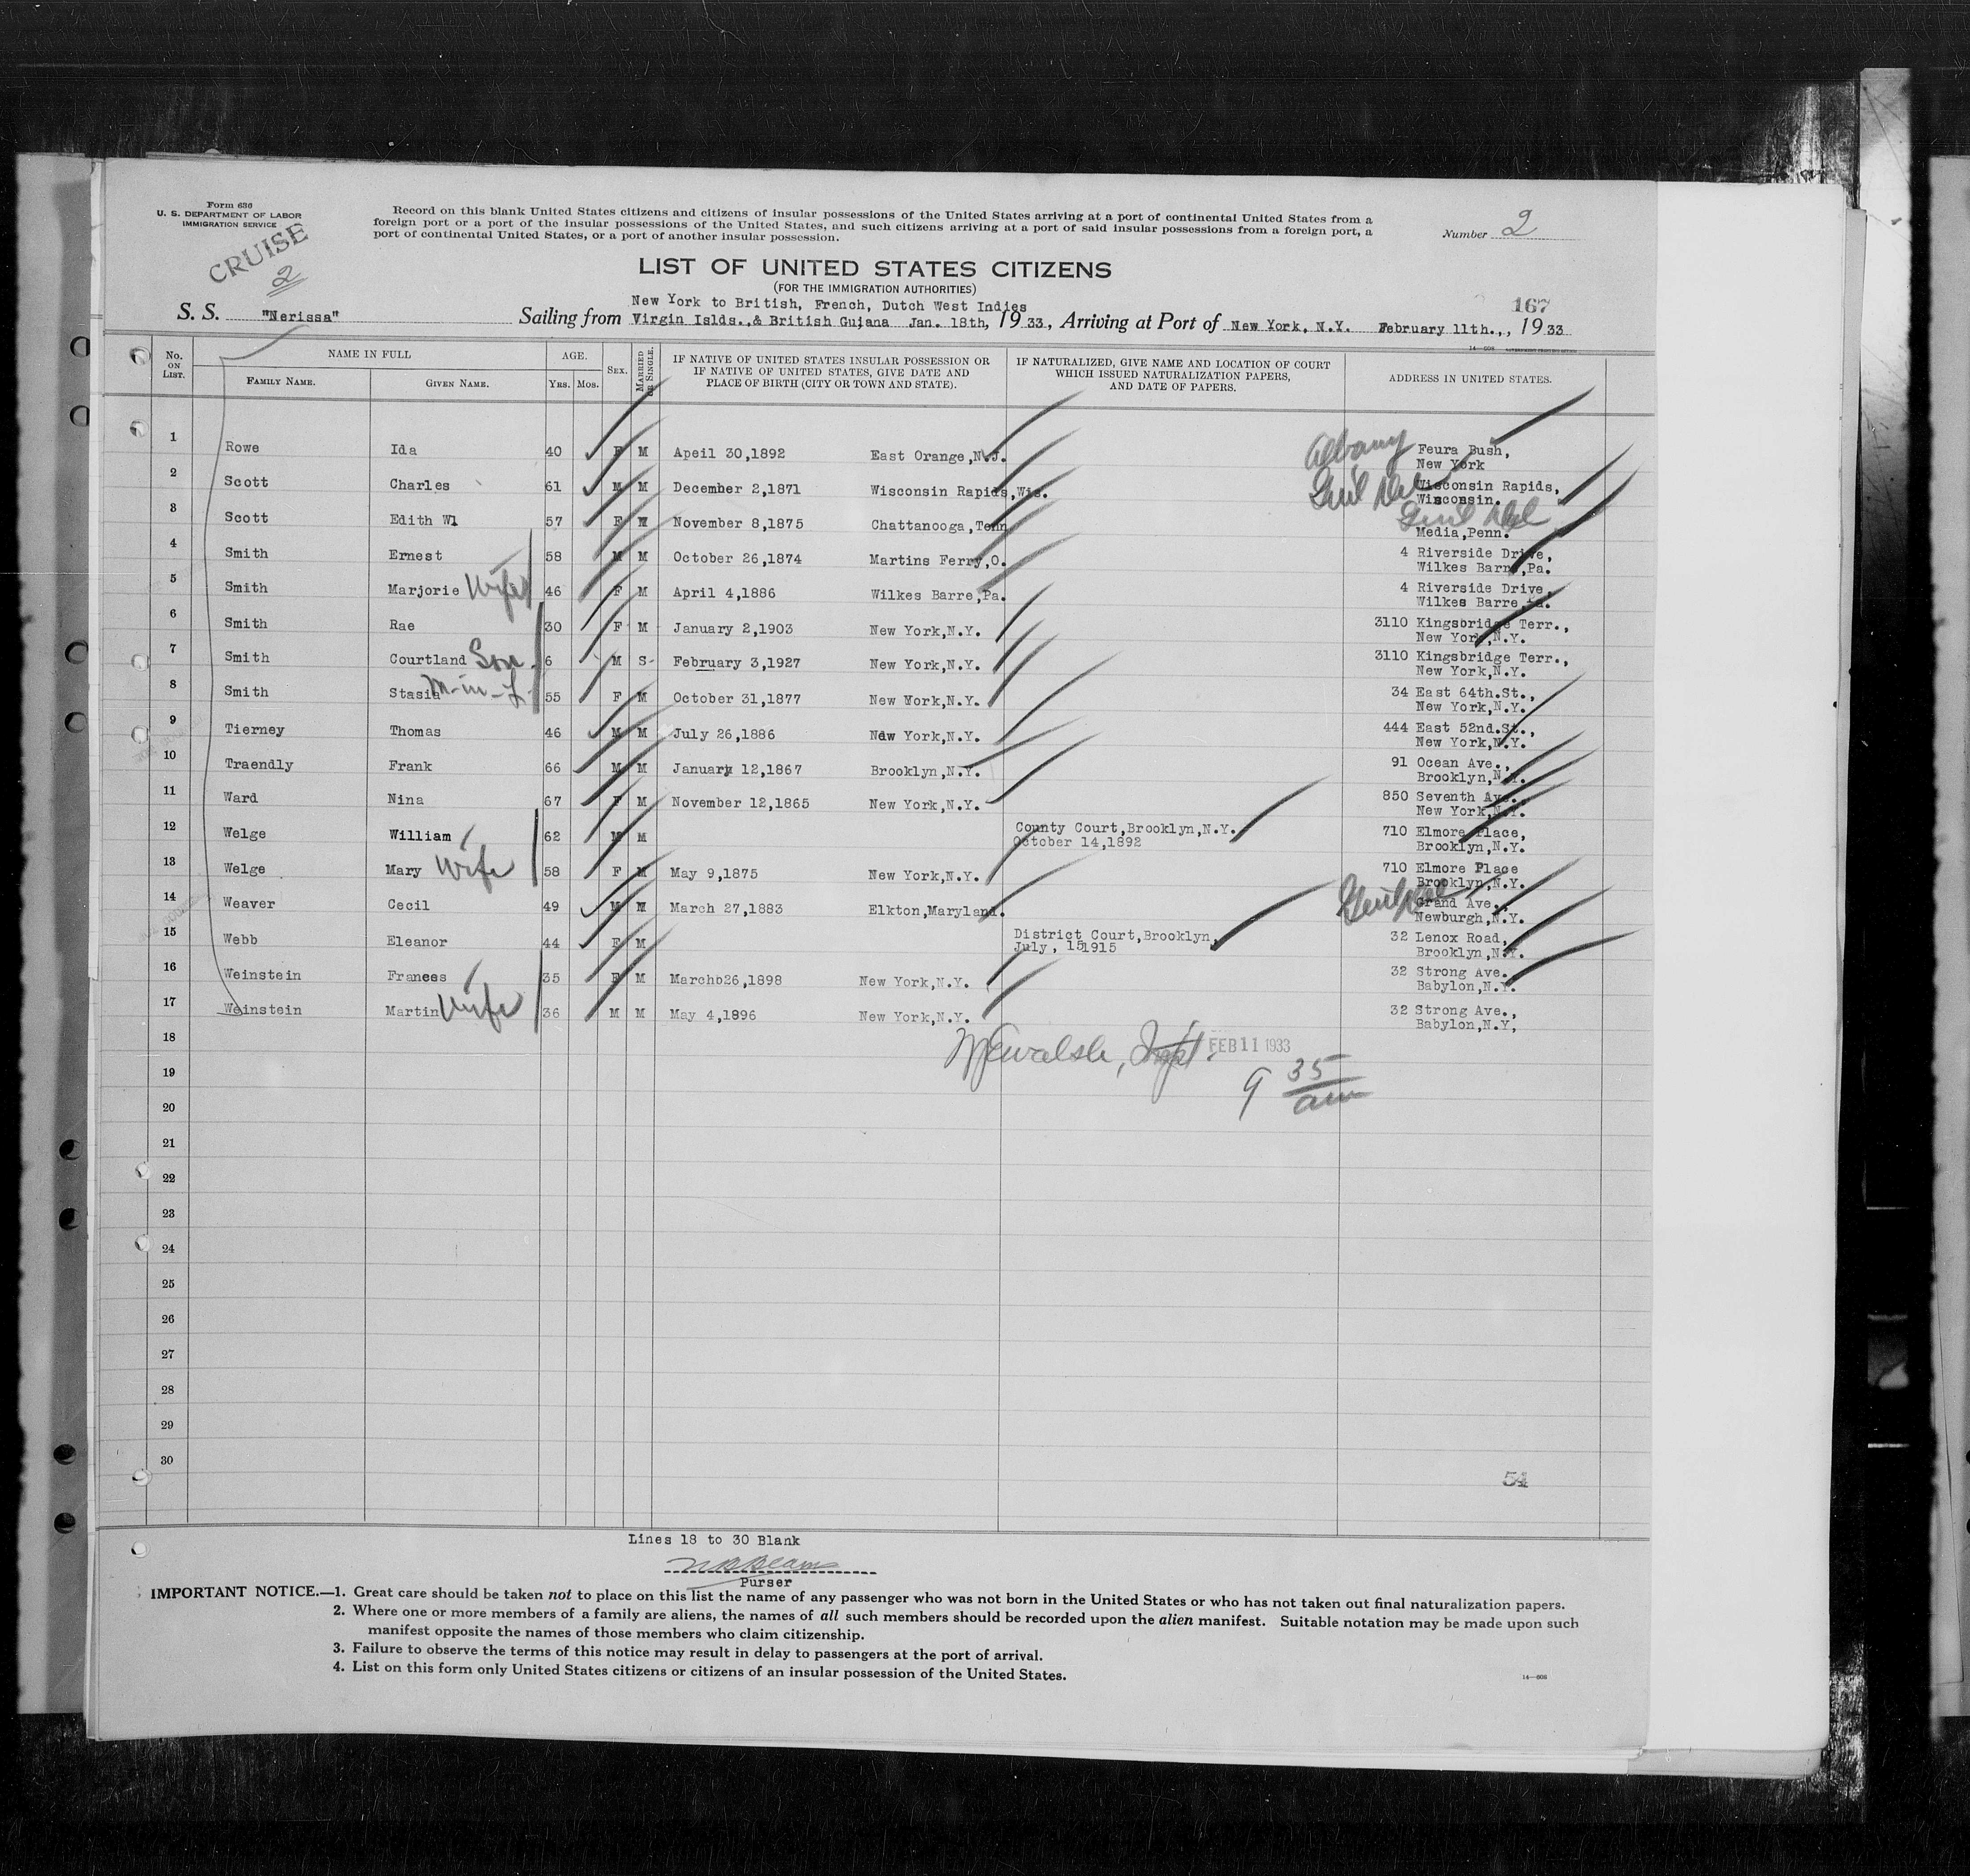 Form 630
U. S. DEPARTMENT OF LABOR
IMMIGRATION SERVICE
CRUISE
2
Record on this blank United States citizens and citizens of insular possessions of the United States arriving at a port of continental United States from a
foreign port or a port of the insular possessions of the United States, and such citizens arriving at a port of said insular possessions from a foreign port, a
port of continental United States, or a port of another insular possession.
Number 2
LIST OF UNITED STATES CITIZENS
(FOR THE IMMIGRATION AUTHORITIES)
167
New York to British, French, Dutch West Indies
S. S. "Nerissa" Sailing from Virgin Islds.,& British Guiana Jan. 18th, 19 33, Arriving at Port of New York, N.Y. February 11th.,, 19 33
No. ON LIST. NAME IN FULL AGE. SEX. MARRIED OR SINGLE. IF NATIVE OF UNITED STATES INSULAR POSSESSION OR IF NATIVE OF UNITED STATES, GIVE DATE AND PLACE OF BIRTH (CITY OR TOWN AND STATE). IF NATURALIZED, GIVE NAME AND LOCATION OF COURT WHICH ISSUED NATURALIZATION PAPERS, AND DATE OF PAPERS. ADDRESS IN UNITED STATES.
FAMILY NAME. GIVEN NAME. YRS. MOS.
1 Rowe Ida 40 F M Apeil 30,1892 East Orange,N.J. Albany Feura Bush,
New York
2 Scott Charles 61 M M December 2,1871 Wisconsin Rapids,Wis. Genl Del Wisconsin Rapids,
Wisconsin.
3 Scott Edith W1 57 F M November 8,1875 Chattanooga,Tenn Genl Del
Media,Penn.
4 Smith Ernest 58 M M October 26,1874 Martins Ferry,O. 4 Riverside Drive,
Wilkes Barre,Pa.
5 Smith Marjorie Wife 46 F M April 4,1886 Wilkes Barre,Pa. 4 Riverside Drive,
Wilkes Barre,Pa.
6 Smith Rae 30 F M January 2,1903 New York,N.Y. 3110 Kingsbridge Terr.,
New York,N.Y.
7 Smith Courtland Son 6 M S February 3,1927 New York,N.Y. 3110 Kingsbridge Terr.,
New York,N.Y.
8 Smith Stasia M-in-L 55 F M October 31,1877 New York,N.Y. 34 East 64th.St.,
New York,N.Y.
9 Tierney Thomas 46 M M July 26,1886 New York,N.Y. 444 East 52nd.St.,
New York,N.Y.
10 Traendly Frank 66 M M January 12,1867 Brooklyn,N.Y. 91 Ocean Ave.,
Brooklyn,N.Y.
11 Ward Nina 67 F M November 12,1865 New York,N.Y. 850 Seventh Ave.,
New York,N.Y.
12 Welge William 62 M M County Court,Brooklyn,N.Y. 710 Elmore Place,
October 14,1892 Brooklyn,N.Y.
13 Welge Mary Wife 58 F M May 9,1875 New York,N.Y. 710 Elmore Place
Brooklyn,N.Y.
14 Weaver Cecil 49 M M March 27,1883 Elkton,Maryland. Genl Del Grand Ave.,
Newburgh,N.Y.
15 Webb Eleanor 44 F M District Court,Brooklyn, 32 Lenox Road,
July, 151915 Brooklyn,N.Y.
16 Weinstein Frances 35 F M Marchb26,1898 New York,N.Y. 32 Strong Ave.
Babylon,N.Y.
17 Weinstein Martin Wife 36 M M May 4,1896 New York,N.Y. 32 Strong Ave.,
Babylon,N.Y,
18
FEB 11 1933
19
9 35 am
20
21
22
23
24
25
26
27
28
29
30
54
Lines 18 to 30 Blank
Purser
IMPORTANT NOTICE.—1. Great care should be taken not to place on this list the name of any passenger who was not born in the United States or who has not taken out final naturalization papers.
2. Where one or more members of a family are aliens, the names of all such members should be recorded upon the alien manifest. Suitable notation may be made upon such
manifest opposite the names of those members who claim citizenship.
3. Failure to observe the terms of this notice may result in delay to passengers at the port of arrival.
4. List on this form only United States citizens or citizens of an insular possession of the United States.
14—608